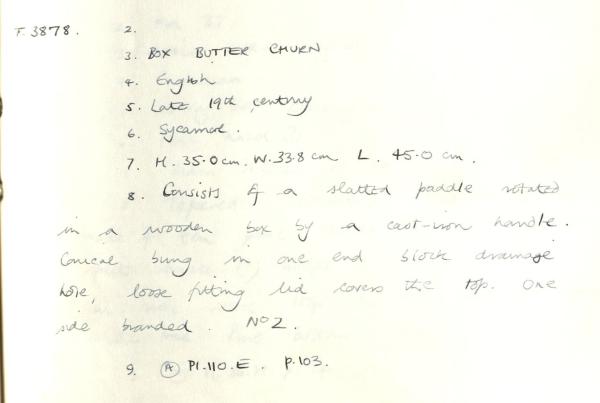 F. 3878. 2.
3. BOX BUTTER CHURN
4. English
5. Late 19th century
6. Sycamore.
7. H. 35.0 cm. W. 33.8 cm L. 45.0 cm.
8. Consists of a slatted paddle rotated
in a wooden box by a cast-iron handle.
Conical bung in one end block drainage
hole, loose fitting lid covers the top. One
side branded. No 2.
9. (A) Pl. 110. E. p. 103.